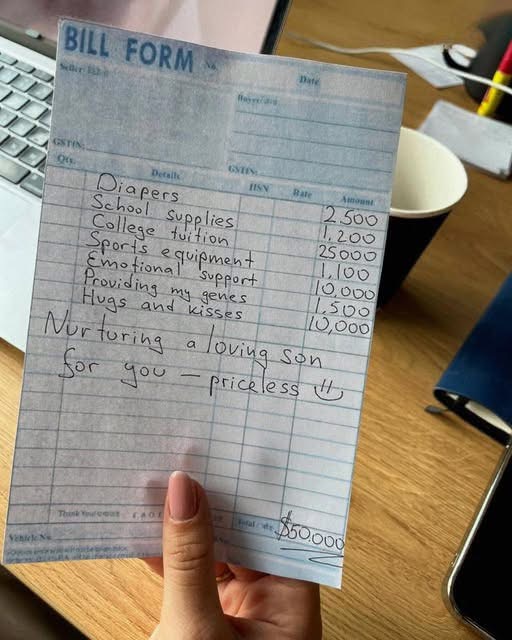 BILL FORM No.
Date
Seller
Buyer
GSTIN:
GSTIN:
Qty. Details HSN Rate Amount
Diapers 2,500
School supplies 1,200
College tuition 25000
Sports equipment 1,100
Emotional support 10,000
Providing my genes 1,500
Hugs and kisses 10,000
Nurturing a loving son
for you – priceless
Total $50.000
Vehicle No.